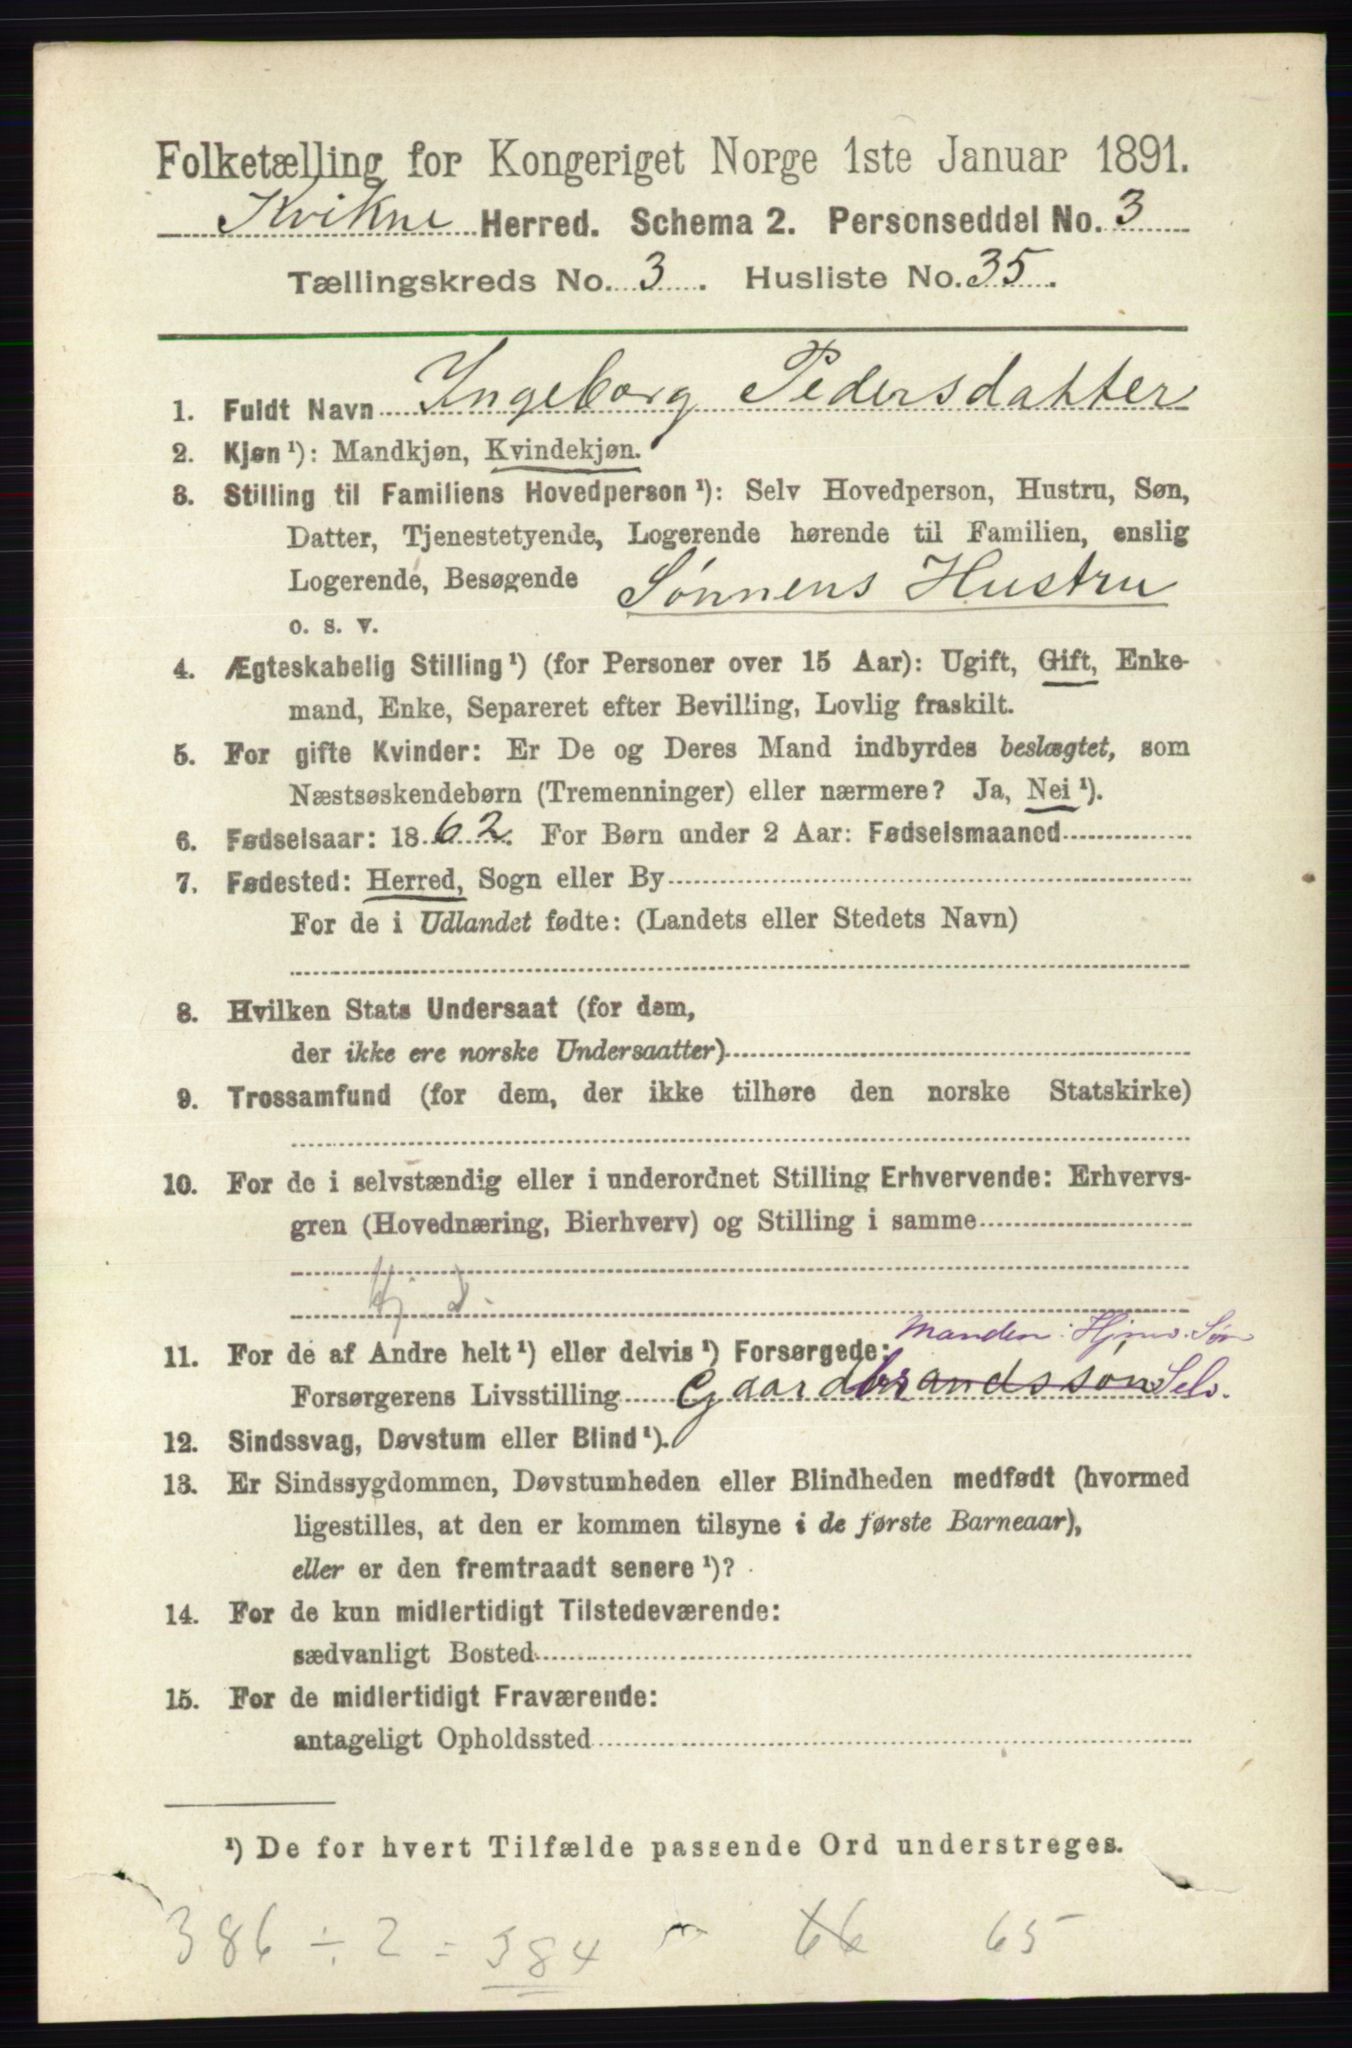 Folketælling for Kongeriget Norge 1ste Januar 1891.
Kvikne Herred. Schema 2. Personseddel No. 3
Tællingskreds No. 3. Husliste No. 35.
1. Fuldt Navn Ingeborg Pedersdatter
2. Kjøn¹): Mandkjøn, Kvindekjøn.
3. Stilling til Familiens Hovedperson¹): Selv Hovedperson, Hustru, Søn,
Datter, Tjenestetyende, Logerende hørende til Familien, enslig
Logerende, Besøgende Sønnens Hustru
o. s. v.
4. Ægteskabelig Stilling¹) (for Personer over 15 Aar): Ugift, Gift, Enke-
mand, Enke, Separeret efter Bevilling, Lovlig fraskilt.
5. For gifte Kvinder: Er De og Deres Mand indbyrdes beslægtet, som
Næstsøskendebørn (Tremenninger) eller nærmere? Ja, Nei¹).
6. Fødselsaar: 1862. For Børn under 2 Aar: Fødselsmaaned
7. Fødested: Herred, Sogn eller By
For de i Udlandet fødte: (Landets eller Stedets Navn)
8. Hvilken Stats Undersaat (for dem,
der ikke ere norske Undersaatter)
9. Trossamfund (for dem, der ikke tilhøre den norske Statskirke)
10. For de i selvstændig eller i underordnet Stilling Erhvervende: Erhvervs-
gren (Hovednæring, Bierhverv) og Stilling i samme
Manden: Hjmv. Søn
11. For de af Andre helt¹) eller delvis¹) Forsørgede:
Forsørgerens Livsstilling Gaardbrandssøn Selv.
12. Sindssvag, Døvstum eller Blind¹).
13. Er Sindssygdommen, Døvstumheden eller Blindheden medfødt (hvormed
ligestilles, at den er kommen tilsyne i de første Barneaar),
eller er den fremtraadt senere¹)?
14. For de kun midlertidigt Tilstedeværende:
sædvanligt Bosted
15. For de midlertidigt Fraværende:
antageligt Opholdssted
¹) De for hvert Tilfælde passende Ord understreges.
386 ÷ 2 = 384 66 65